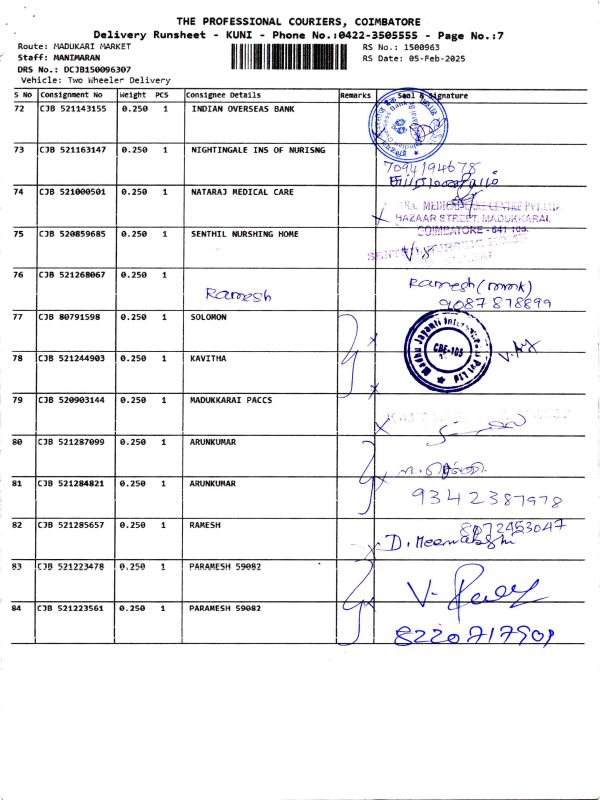 THE PROFESSIONAL COURIERS, COIMBATORE
Delivery Runsheet - KUNI - Phone No.:0422-3505555 - Page No.:7
Route: MADUKARI MARKET RS No.: 1500963
Staff: MANIMARAN RS Date: 05-Feb-2025
DRS No.: DCJB150096307
Vehicle: Two Wheeler Delivery
S No Consignment No Weight PCS Consignee Details Remarks Seal & Signature
72 CJB 521143155 0.250 1 INDIAN OVERSEAS BANK
73 CJB 521163147 0.250 1 NIGHTINGALE INS OF NURISNG
7094194678
74 CJB 521000501 0.250 1 NATARAJ MEDICAL CARE
BAZAAR STREET, MADUKKARAI.
COIMBATORE - 641 105.
75 CJB 520859685 0.250 1 SENTHIL NURSHING HOME
76 CJB 521268067 0.250 1
Ramesh Ramesh (mmk)
9087878899
77 CJB 80791598 0.250 1 SOLOMON
CBE-105
78 CJB 521244903 0.250 1 KAVITHA
79 CJB 520903144 0.250 1 MADUKKARAI PACCS
80 CJB 521287099 0.250 1 ARUNKUMAR
81 CJB 521284821 0.250 1 ARUNKUMAR
9342387978
82 CJB 521285657 0.250 1 RAMESH
8072453047
D. Meenakshi
83 CJB 521223478 0.250 1 PARAMESH 59082
84 CJB 521223561 0.250 1 PARAMESH 59082
8220717509